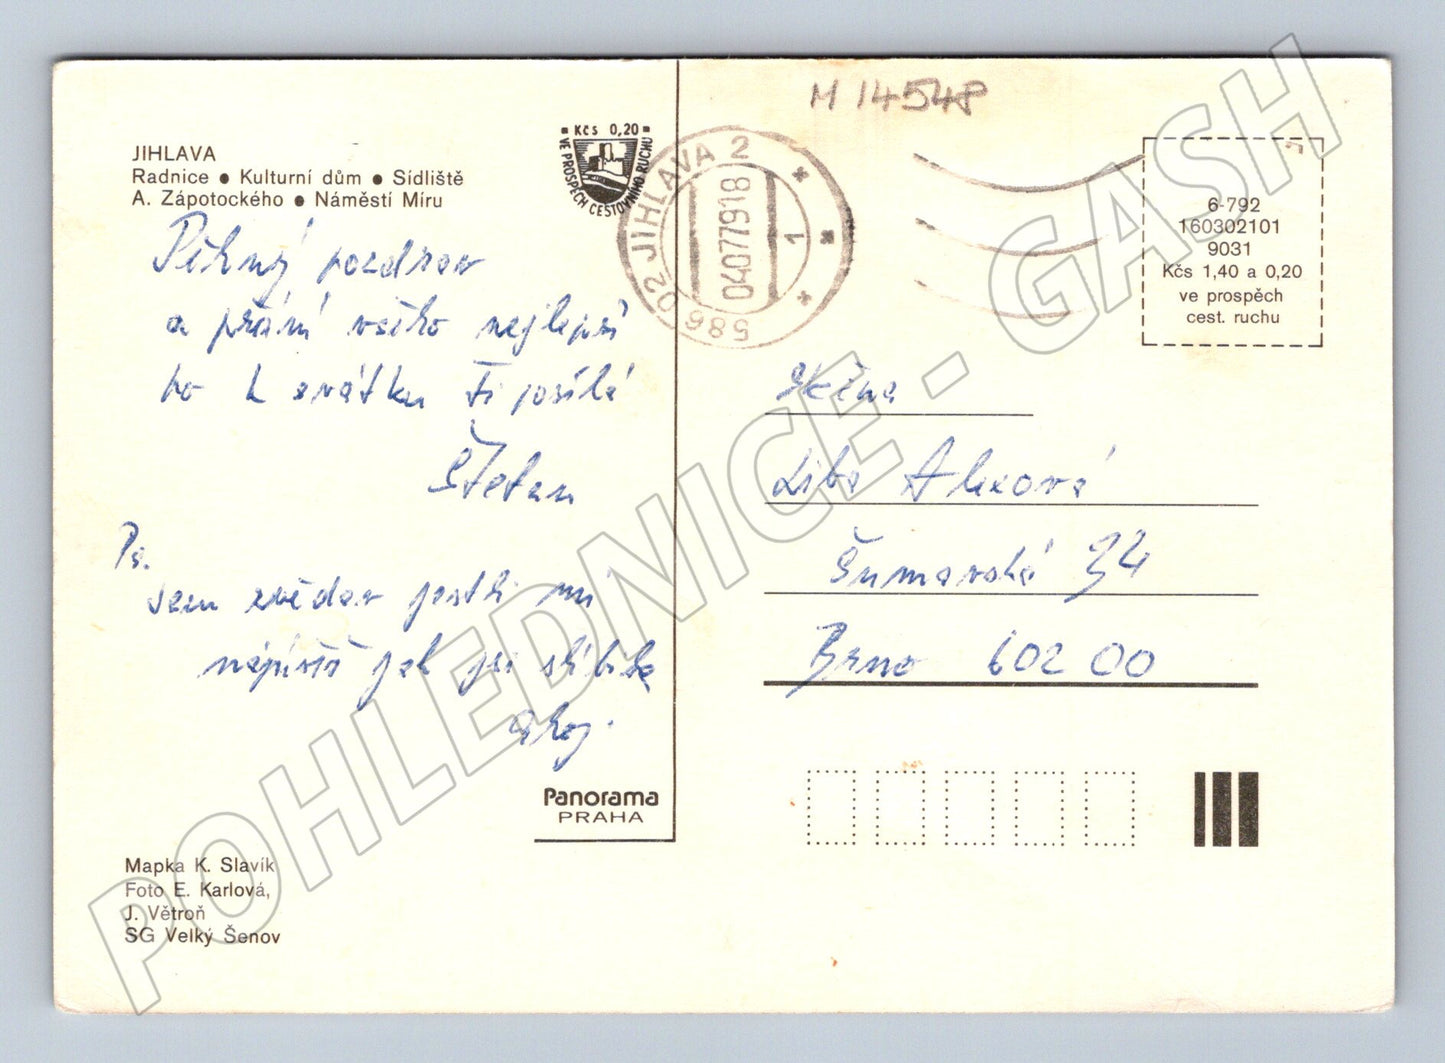 M 14548
JIHLAVA
Radnice ● Kulturní dům ● Sídliště
A. Zápotockého ● Náměstí Míru
Kčs 0,20
VE PROSPĚCH CESTOVNÍHO RUCHU
586 02 JIHLAVA 2
04077918
1
6-792
160302101
9031
Kčs 1,40 a 0,20
ve prospěch
cest. ruchu
Pěkný pozdrav
a přání všeho nejlepší
ho k svátku Ti posílá
Štefan
Ps.
Jsem zvědav jestli mi
napíšeš jak jsi slíbila
Ahoj.
Slečna
Liba Alexová
Šumavská 34
Brno 602 00
Panorama
PRAHA
Mapka K. Slavík
Foto E. Karlová,
J. Větroň
SG Velký Šenov
POHLEDNICE - GASH